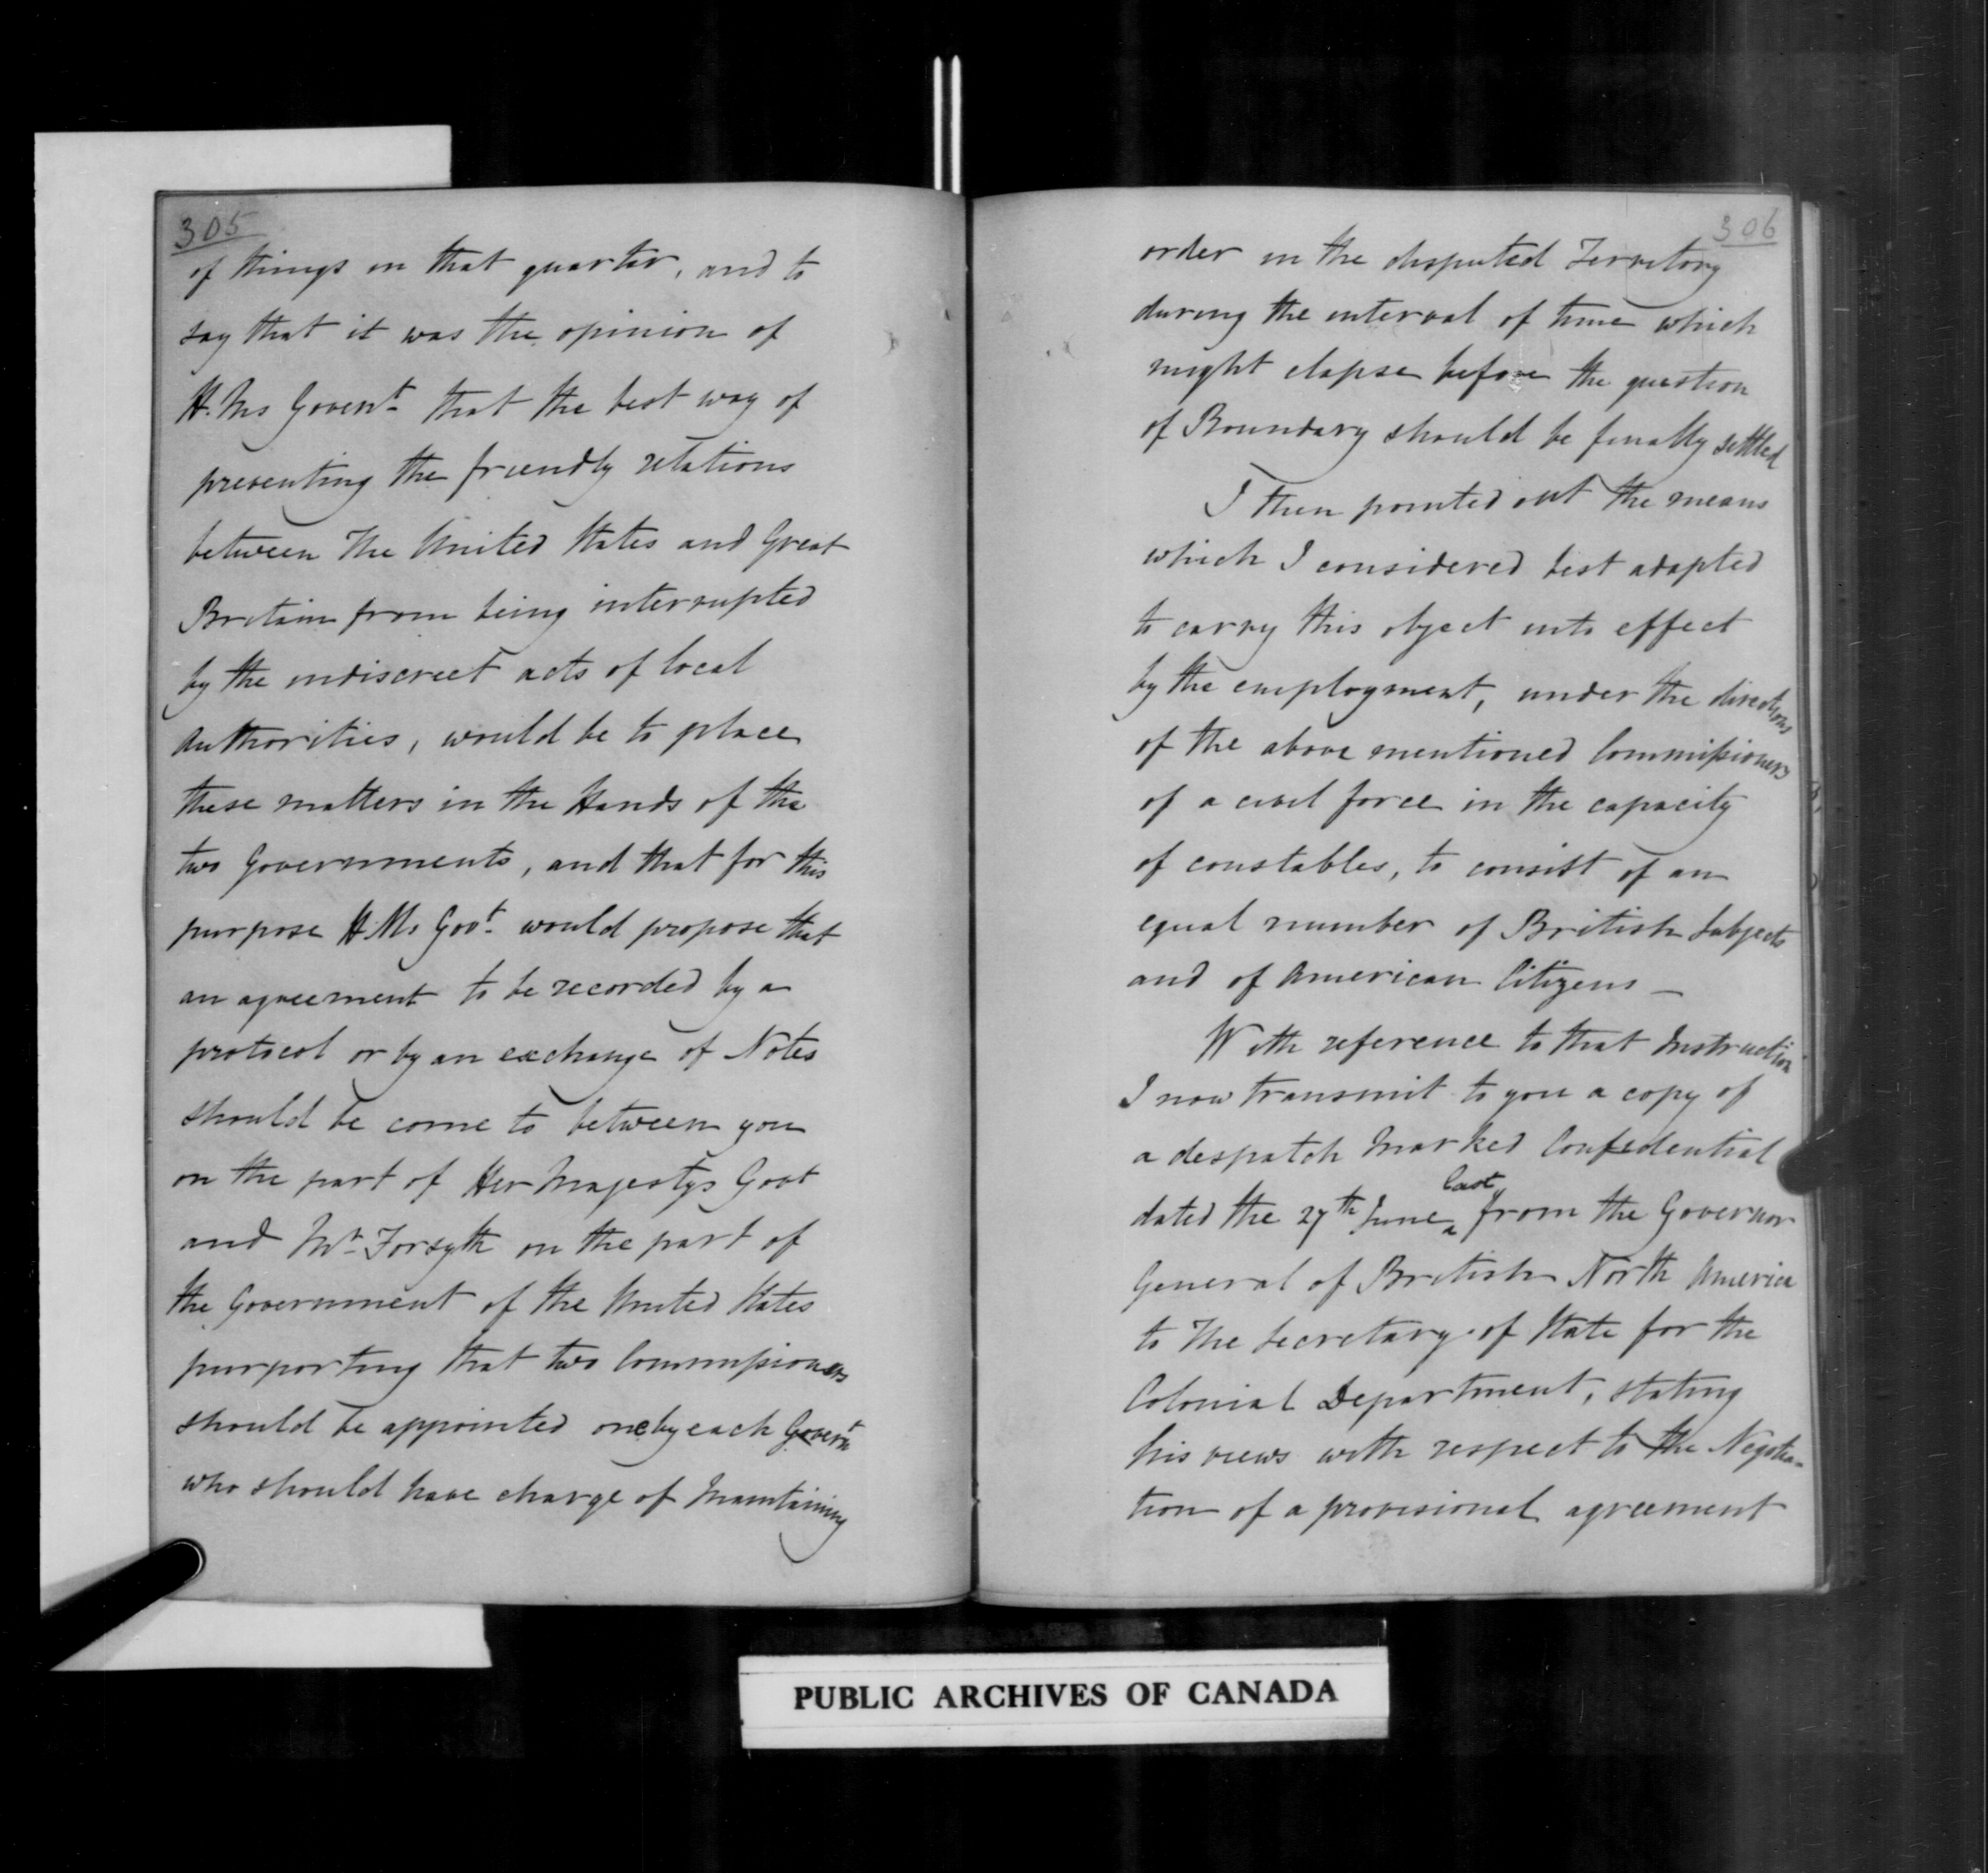 305
of things in that quarter, and to
say that it was the opinion of
H. Ms Governt. that the best way of
preventing the friendly relations
between The United States and Great
Britain from being interrupted
by the indiscreet acts of local
authorities, would be to place
these matters in the Hands of the
two Governments, and that for this
purpose H. Ms Govt. would propose that
an agreement to be recorded by a
protocol or by an exchange of Notes
should be come to between you
on the part of Her Majestys Govt
and Mr. Forsyth on the part of
the Government of the United States
purporting that two Commissioners
should be appointed one by each Governt
who should have charge of Maintaining
306
order in the disputed Territory
during the interval of time which
might elapse before the question
of Boundary should be finally settled
I then pointed out the means
which I considered best adapted
to carry this object into effect
by the employment, under the directions
of the above mentioned Commissioners
of a civil force in the capacity
of constables, to consist of an
equal number of British Subjects
and of American Citizens —
With reference to that Instruction
I now transmit to you a copy of
a despatch Marked Confidential
dated the 27th June last, from the Governor
General of British North America
to The Secretary of State for the
Colonial Department, stating
his views with respect to the Negotia-
tion of a provisional agreement
PUBLIC ARCHIVES OF CANADA